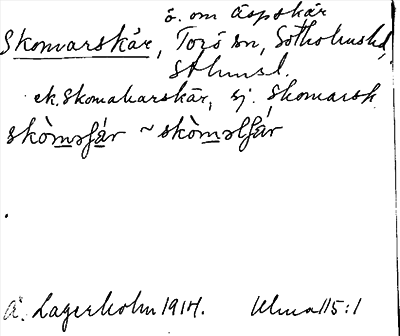 ö. om Aspskär
Skomarskär, Torö sn, Sotholmshd,
Sthmsl.
ek. Skomakarskär, sj. Skomarsk
skòmaʃä́r ~ skòmalʃä́r
A. Lagerholm 1914. Utma 115:1